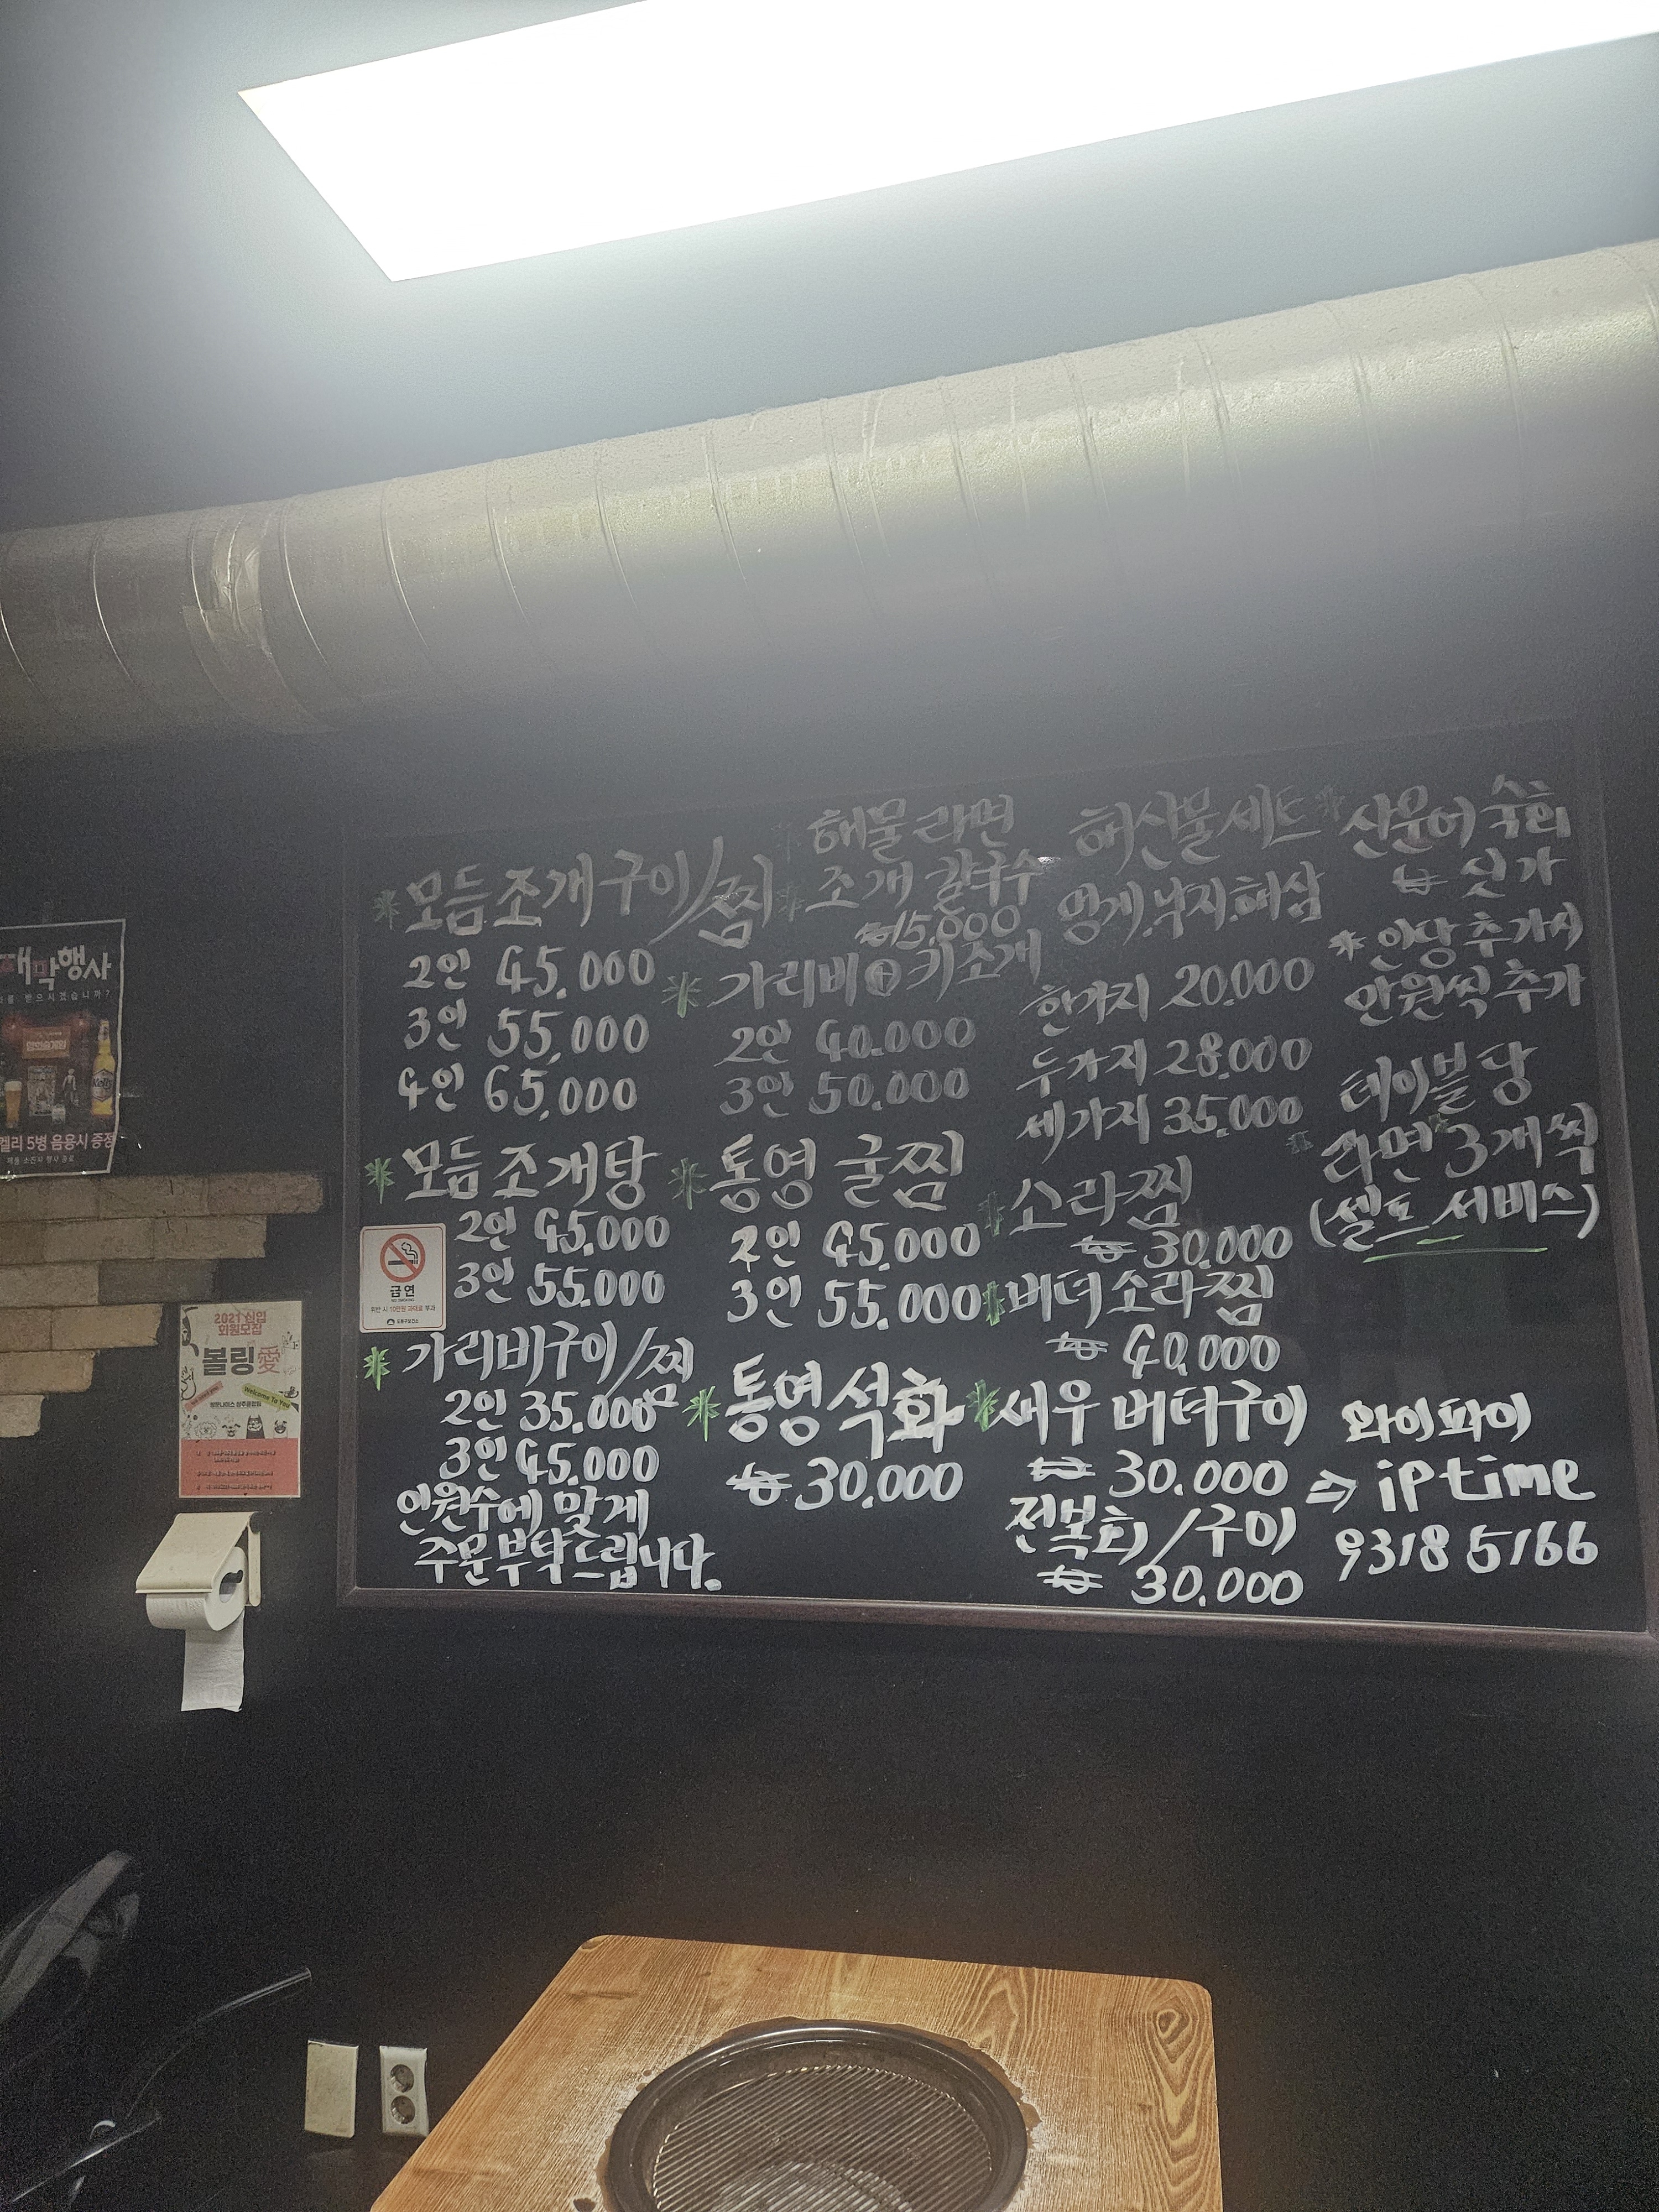 모듬조개구이/찜
2인 45,000
3인 55,000
4인 65,000
모듬조개탕
2인 45.000
3인 55.000
가리비구이/찜
2인 35.000
3인 45.000
인원수에 맞게
주문부탁드립니다.
해물라면
조개칼국수
₩15.000
가리비⊕키조개
2인 40.000
3인 50.000
통영 굴찜
2인 45.000
3인 55.000
통영석화
₩ 30.000
해산물세트
멍게.낙지.해삼
한가지 20.000
두가지 28.000
세가지 35.000
소라찜
₩ 30.000
버터소라찜
₩ 40.000
새우버터구이
₩ 30.000
전복회/구이
₩ 30.000
산문어숙회
₩ 싯가
*인당추가시
인원씩추가
테이블당
라면3개씩
(셀프서비스)
와이파이
⇒ iptime
93185166
행사
를 받으시겠습니까?
켈리 5병 음용시 증정
금연
위반 시 10만원 과태료 부과
도봉구보건소
2021 신입
회원모집
볼링愛
Welcome To You